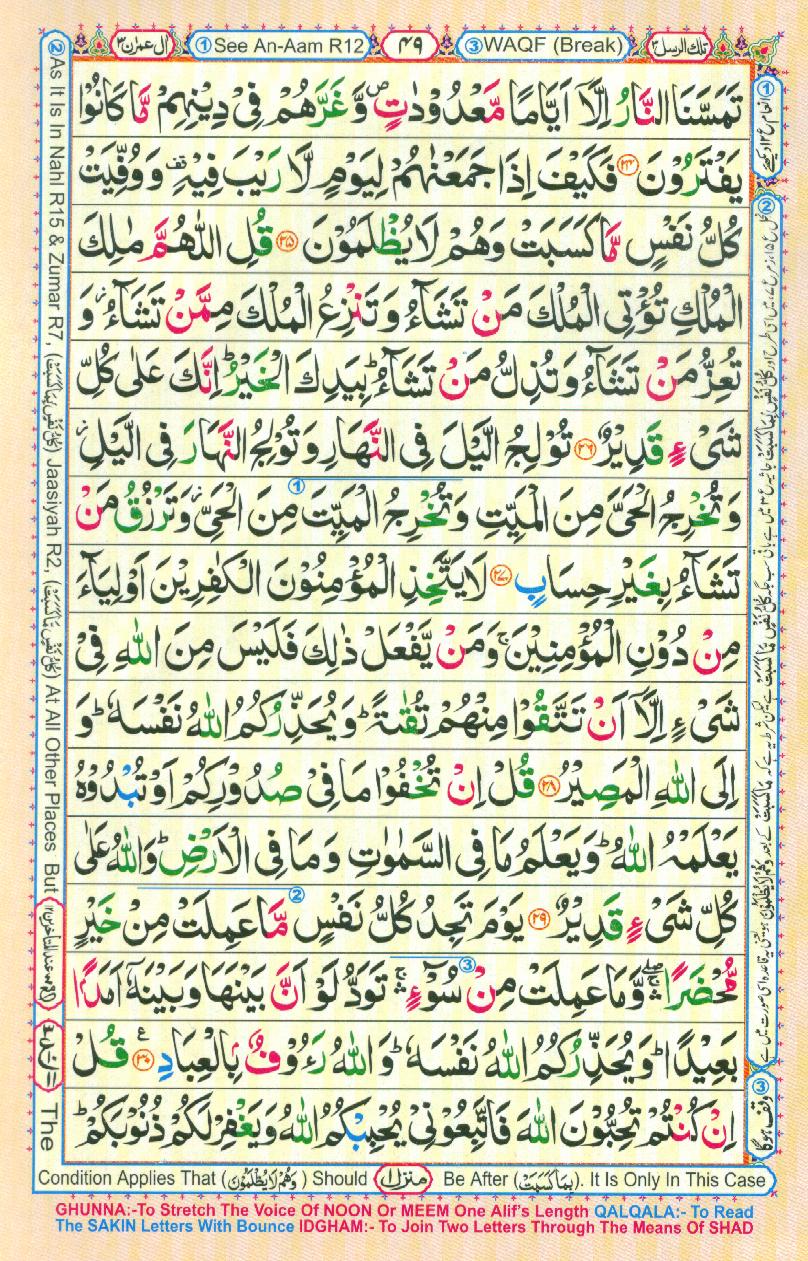 تلك الرسل ٣
③WAQF (Break)
٤٩
①See An-Aam R12
اٰل عمرٰن ٣
تَمَسَّنَا النَّارُ اِلَّاۤ اَيَّامًا مَّعْدُوْدٰتٍ ۪ وَّغَرَّهُمْ فِيْ دِيْنِهِمْ مَّا كَانُوْا
يَفْتَرُوْنَ ﴿۲۴﴾ فَكَيْفَ اِذَا جَمَعْنٰهُمْ لِيَوْمٍ لَّا رَيْبَ فِيْهِ ۫ وَوُفِّيَتْ
كُلُّ نَفْسٍ مَّا كَسَبَتْ وَهُمْ لَا يُظْلَمُوْنَ ﴿۲۵﴾ قُلِ اللّٰهُمَّ مٰلِكَ
الْمُلْكِ تُؤْتِي الْمُلْكَ مَنْ تَشَآءُ وَ تَنْزِعُ الْمُلْكَ مِمَّنْ تَشَآءُ ۫ وَ
تُعِزُّ مَنْ تَشَآءُ وَ تُذِلُّ مَنْ تَشَآءُ ؕ بِيَدِكَ الْخَيْرُ ؕ اِنَّكَ عَلٰى كُلِّ
شَيْءٍ قَدِيْرٌ ﴿۲۶﴾ تُوْلِجُ الَّيْلَ فِي النَّهَارِ وَ تُوْلِجُ النَّهَارَ فِي الَّيْلِ ۫
وَ تُخْرِجُ الْحَيَّ مِنَ الْمَيِّتِ وَ تُخْرِجُ الْمَيِّتَ مِنَ الْحَيِّ ۫ وَ تَرْزُقُ مَنْ
تَشَآءُ بِغَيْرِ حِسَابٍ ﴿۲۷﴾ لَا يَتَّخِذِ الْمُؤْمِنُوْنَ الْكٰفِرِيْنَ اَوْلِيَآءَ
مِنْ دُوْنِ الْمُؤْمِنِيْنَ ۚ وَمَنْ يَّفْعَلْ ذٰلِكَ فَلَيْسَ مِنَ اللّٰهِ فِيْ
شَيْءٍ اِلَّاۤ اَنْ تَتَّقُوْا مِنْهُمْ تُقٰىةً ؕ وَ يُحَذِّرُكُمُ اللّٰهُ نَفْسَهٗ ؕ وَ
اِلَى اللّٰهِ الْمَصِيْرُ ﴿۲۸﴾ قُلْ اِنْ تُخْفُوْا مَا فِيْ صُدُوْرِكُمْ اَوْ تُبْدُوْهُ
يَعْلَمْهُ اللّٰهُ ؕ وَ يَعْلَمُ مَا فِي السَّمٰوٰتِ وَ مَا فِي الْاَرْضِ ؕ وَ اللّٰهُ عَلٰى
كُلِّ شَيْءٍ قَدِيْرٌ ﴿۲۹﴾ يَوْمَ تَجِدُ كُلُّ نَفْسٍ مَّا عَمِلَتْ مِنْ خَيْرٍ
مُّحْضَرًا ۛۖ وَّ مَا عَمِلَتْ مِنْ سُوْٓءٍ ۛۚ تَوَدُّ لَوْ اَنَّ بَيْنَهَا وَ بَيْنَهٗۤ اَمَدًۢا
بَعِيْدًا ؕ وَ يُحَذِّرُكُمُ اللّٰهُ نَفْسَهٗ ؕ وَ اللّٰهُ رَءُوْفٌۢ بِالْعِبَادِ ﴿۳۰﴾ قُلْ
اِنْ كُنْتُمْ تُحِبُّوْنَ اللّٰهَ فَاتَّبِعُوْنِيْ يُحْبِبْكُمُ اللّٰهُ وَ يَغْفِرْ لَكُمْ ذُنُوْبَكُمْ ؕ
② As It Is In Nahl R15 & Zumar R7, (كُلُّ نَفْسٍ بِمَا كَسَبَتْ) Jaasiyah R2, (كُلُّ نَفْسٍ مَّا كَسَبَتْ) At All Other Places But
The
Condition Applies That (وَهُمْ لَا يُظْلَمُوْنَ) Should
منزل ١
Be After (بِمَا كَسَبَتْ). It Is Only In This Case
③ وقف ہوگا
GHUNNA:-To Stretch The Voice Of NOON Or MEEM One Alif's Length QALQALA:- To Read
The SAKIN Letters With Bounce IDGHAM:- To Join Two Letters Through The Means Of SHAD